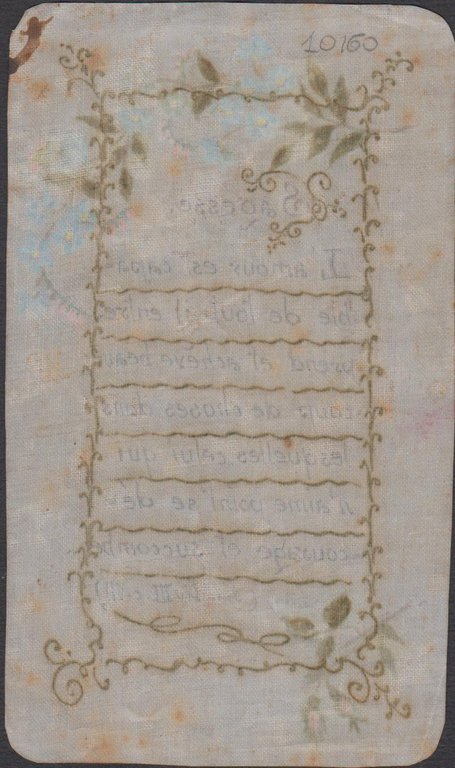 10160
Sagesse.
L'amour est capa-
ble de tout; il entre-
prend et achève beau-
coup de choses dans
lesquelles celui qui
n'aime point se dé-
courage et succombe